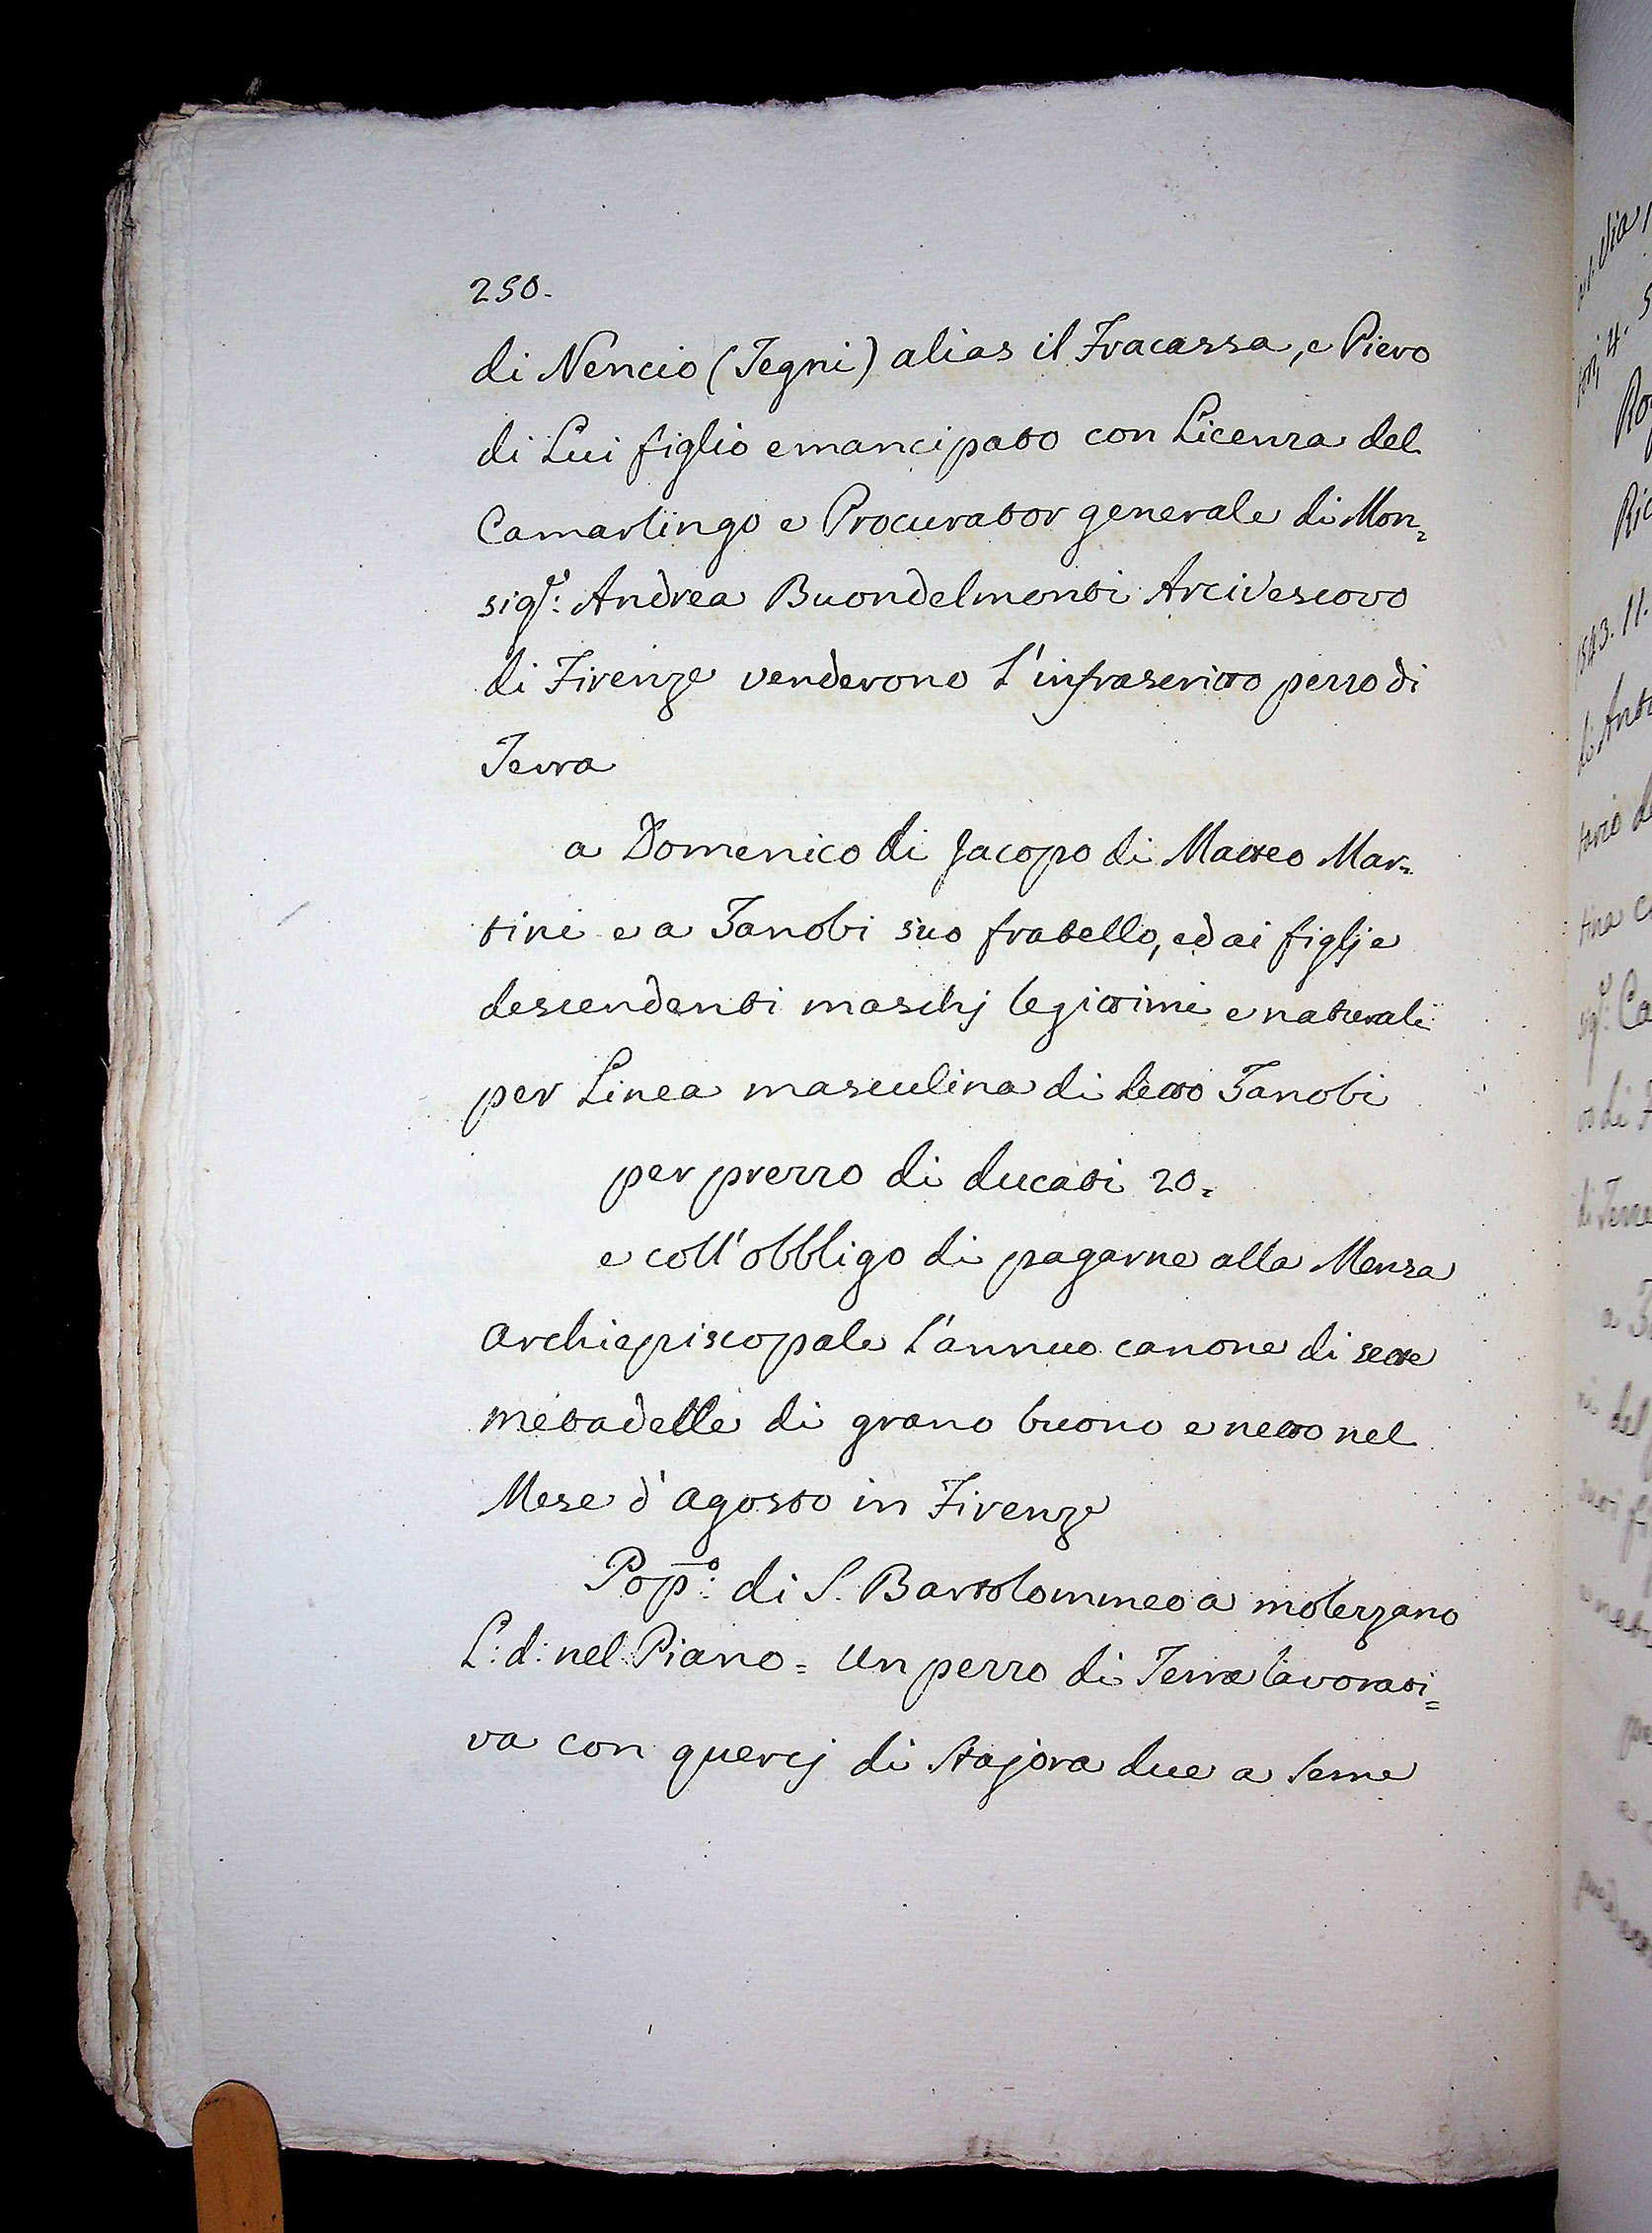 250.
di Nencio (Tegni) alias il Fracassa, e Piero
di Lui figlio emancipato con Licenza del
Camarlingo e Procurator generale di Mon=
sigr: Andrea Buondelmonti Arcivescovo
di Firenze venderono l'infrascritto pezzo di
Terra
a Domenico di Jacopo di Matteo Mar=
tini e a Zanobi suo fratello, ed ai figlj e
descendenti maschj legittimi e naturali
per Linea masculina di detto Zanobi
per prezzo di ducati 20.
e coll'obbligo di pagarne alla Mensa
Archiepiscopale l'annuo canone di sette
metadelle di grano buono e netto nel
Mese d'Agosto in Firenze
Popo: di S. Bartolommeo a molezzano
L: d: nel Piano = Un pezzo di Terra lavorati=
va con quercj di Stajora due a seme